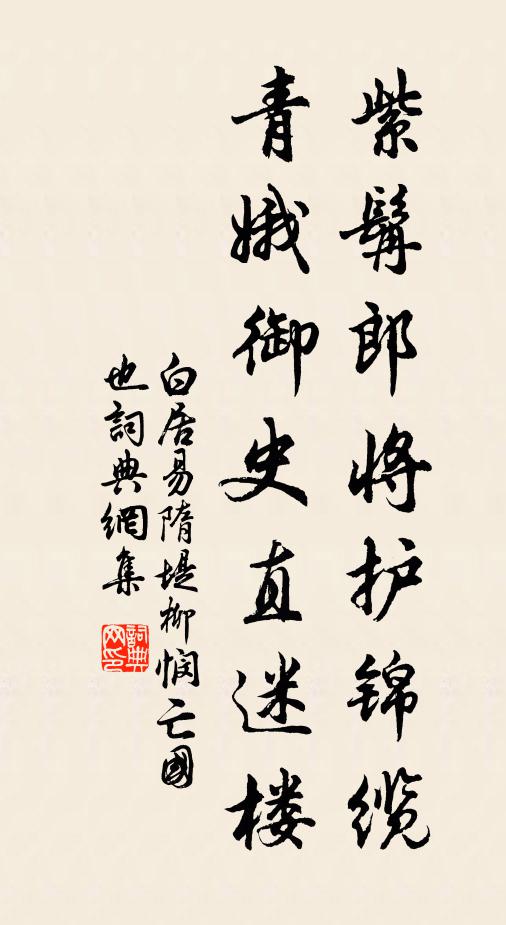 紫髯郎将护锦缆
青娥御史直迷楼
白居易隋堤柳悯亡國
也詞典網集
詞典
网印